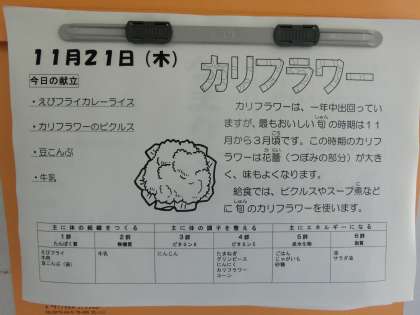 11月21日（木）
カリフラワー
今日の献立
・えびフライカレーライス
・カリフラワーのピクルス
・豆こんぶ
・牛乳
カリフラワーは、一年中出回ってい
ますが、最もおいしい旬の時期は１１
月から３月頃です。この時期のカリフ
ラワーは花蕾（つぼみの部分）が大き
く、味もよくなります。
給食では、ピクルスやスープ煮など
に旬のカリフラワーを使います。
主に体の組織をつくる 主に体の調子を整える 主にエネルギーになる
1群 2群 3群 4群 5群 6群
たんぱく質 無機質 ビタミンA ビタミンC 炭水化物 脂質
えびフライ 牛乳 にんじん たまねぎ ごはん 油
牛肉 グリンピース じゃがいも サラダ油
豆こんぶ（袋） にんにく 砂糖
カリフラワー
コーン